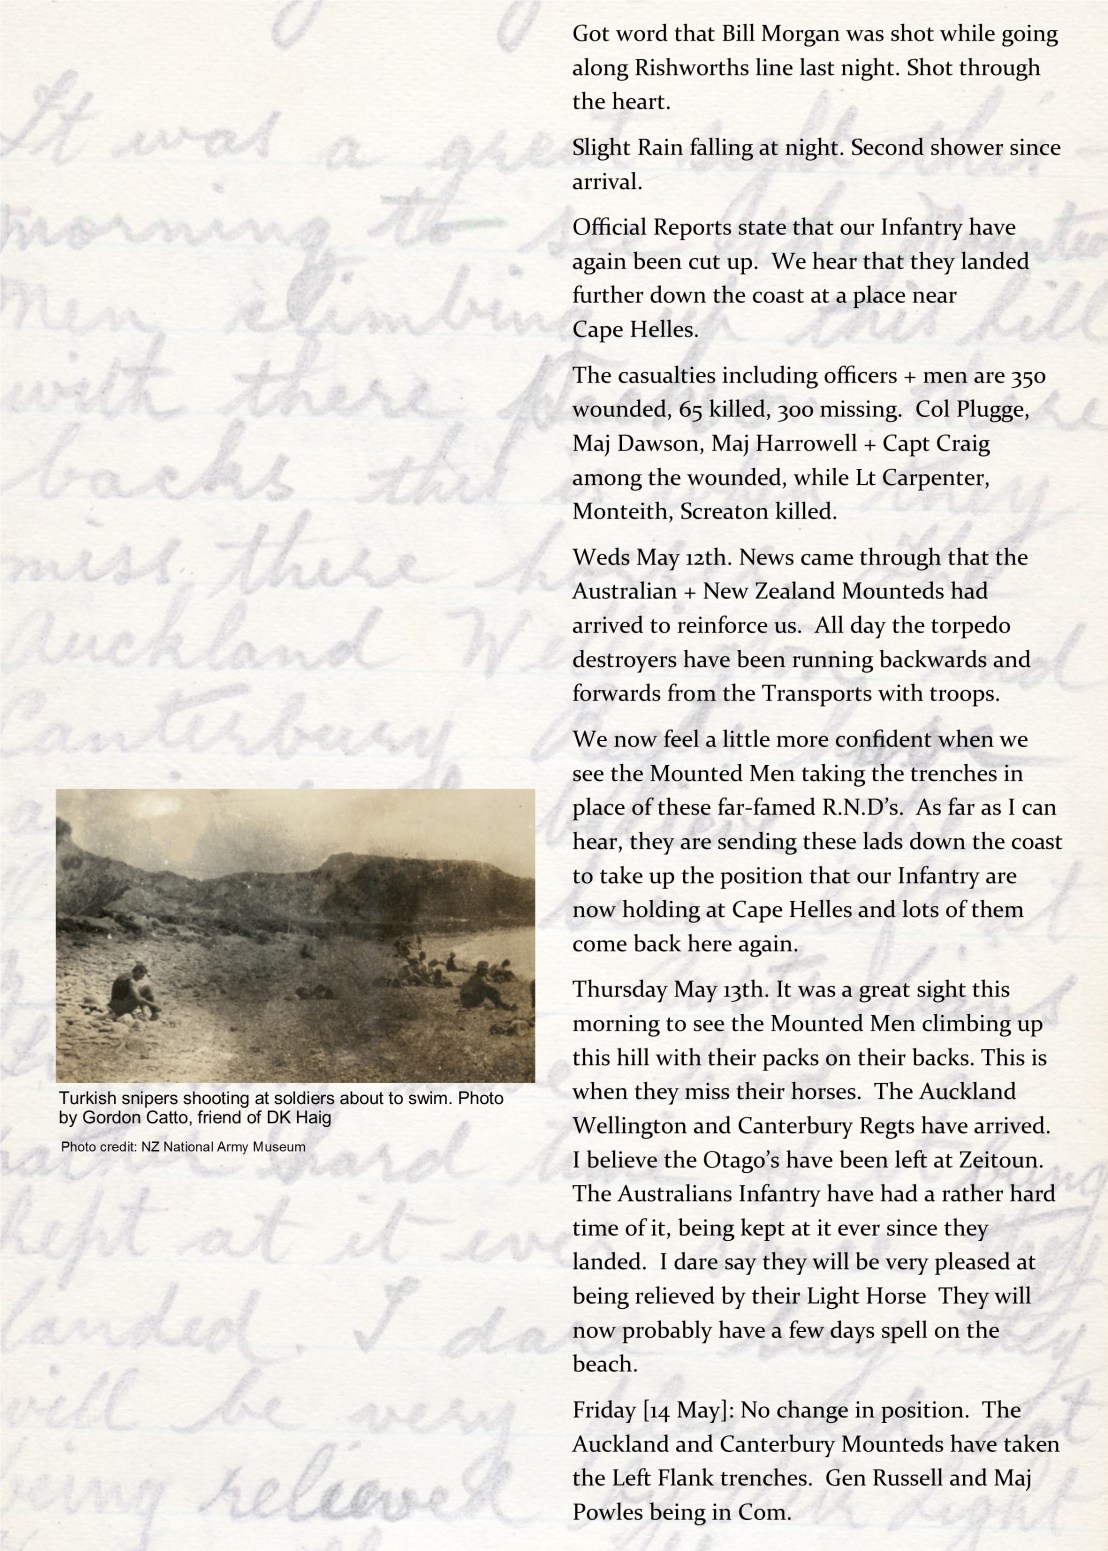 Got word that Bill Morgan was shot while going
along Rishworths line last night. Shot through
the heart.
Slight Rain falling at night. Second shower since
arrival.
Official Reports state that our Infantry have
again been cut up.  We hear that they landed
further down the coast at a place near
Cape Helles.
The casualties including officers + men are 350
wounded, 65 killed, 300 missing.  Col Plugge,
Maj Dawson, Maj Harrowell + Capt Craig
among the wounded, while Lt Carpenter,
Monteith, Screaton killed.
Weds May 12th. News came through that the
Australian + New Zealand Mounteds had
arrived to reinforce us.  All day the torpedo
destroyers have been running backwards and
forwards from the Transports with troops.
We now feel a little more confident when we
see the Mounted Men taking the trenches in
place of these far-famed R.N.D's.  As far as I can
hear, they are sending these lads down the coast
to take up the position that our Infantry are
now holding at Cape Helles and lots of them
come back here again.
Thursday May 13th. It was a great sight this
morning to see the Mounted Men climbing up
this hill with their packs on their backs. This is
when they miss their horses.  The Auckland
Wellington and Canterbury Regts have arrived.
I believe the Otago's have been left at Zeitoun.
The Australians Infantry have had a rather hard
time of it, being kept at it ever since they
landed.  I dare say they will be very pleased at
being relieved by their Light Horse  They will
now probably have a few days spell on the
beach.
Friday [14 May]: No change in position.  The
Auckland and Canterbury Mounteds have taken
the Left Flank trenches.  Gen Russell and Maj
Powles being in Com.
Turkish snipers shooting at soldiers about to swim. Photo
by Gordon Catto, friend of DK Haig
Photo credit: NZ National Army Museum
It was a great sight this
morning to see the Mounted
Men climbing up this hill
with there
backs this is when they
miss there
Auckland Wellington and
Canterbury
rather hard time of it being
kept at it ever since they
landed. I dare say they
will be very pleased at
being relieved by their Light